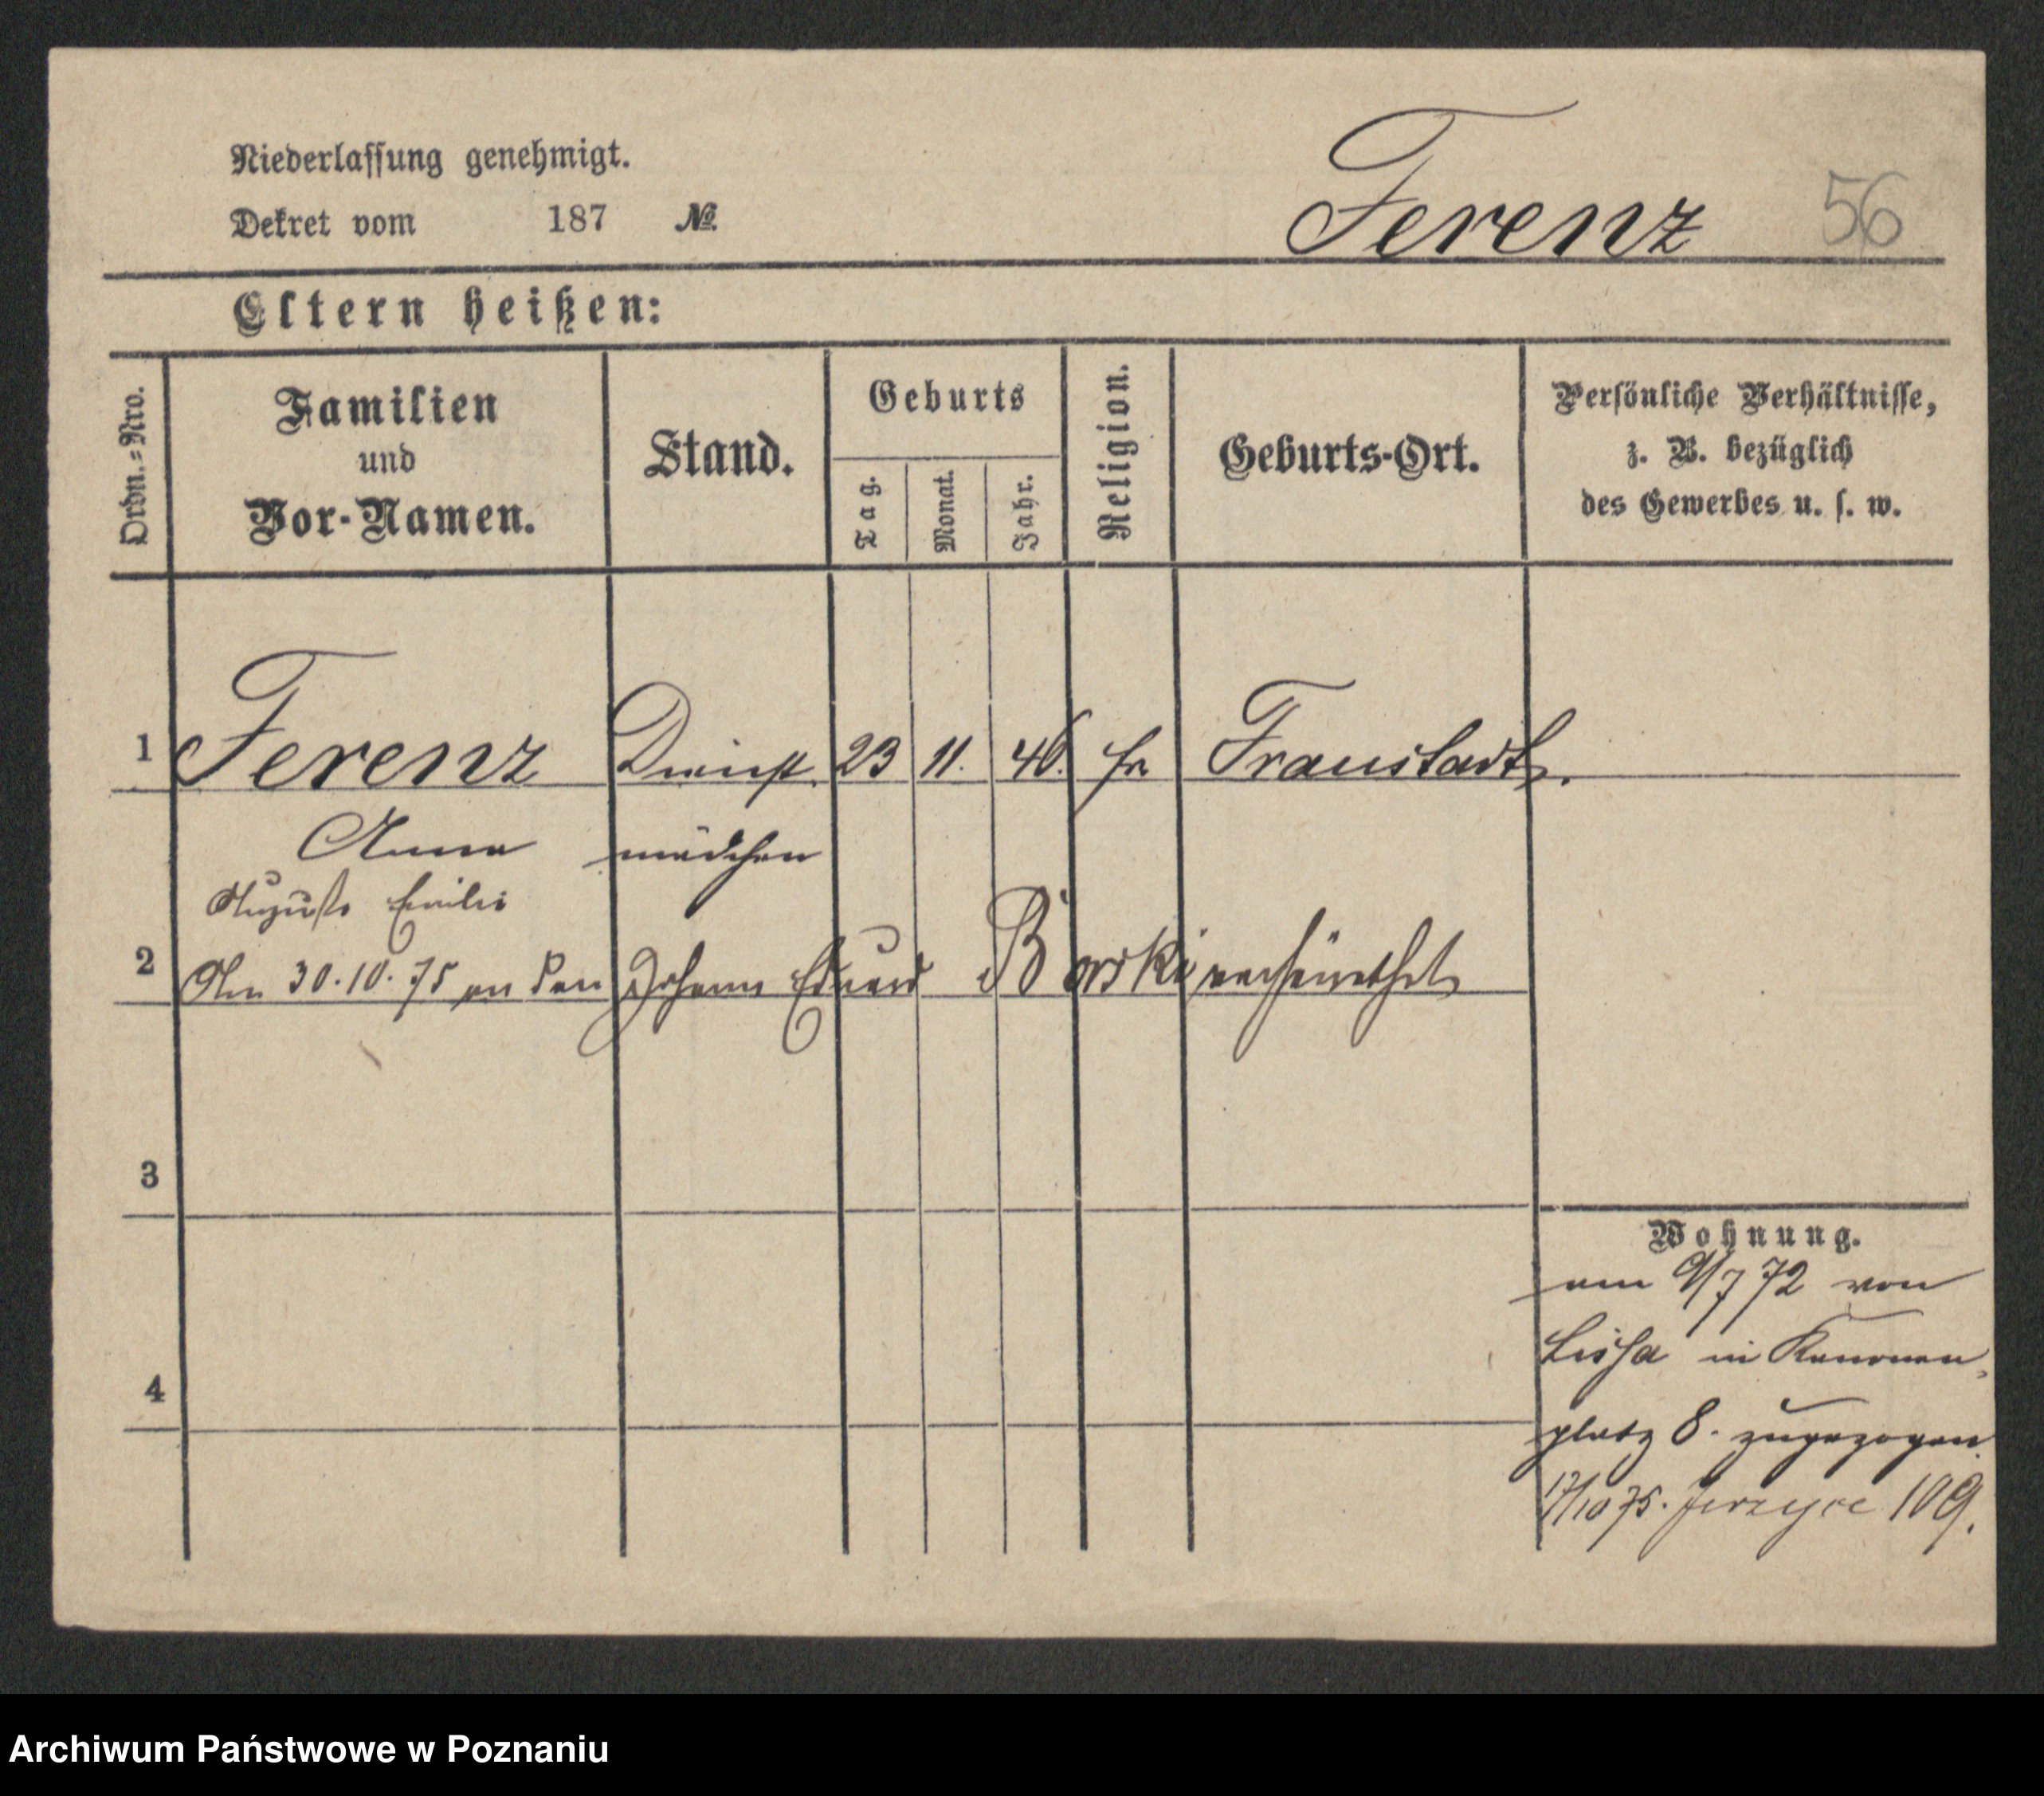 Niederlassung genehmigt.
Dekret vom 187 №
Ferenz 56
Eltern heißen:
Ordn.-Nro.
Familien
und
Vor-Namen.
Stand.
Geburts
Tag.
Monat.
Jahr.
Religion.
Geburts-Ort.
Persönliche Verhältnisse,
z. B. bezüglich
des Gewerbes u. s. w.
1 Ferenz Dienst 23 11. 46. Fraustadt.
Anna mädchen
Auguste Emilie
2 Am 30.10.75 an den Johann Eduard Borski verheirathet
3
4
Wohnung.
am 9/7 72 von
Lissa in Kanonen-
platz 8. zugezogen.
17/10 75. Jerzyce 109.
Archiwum Państwowe w Poznaniu